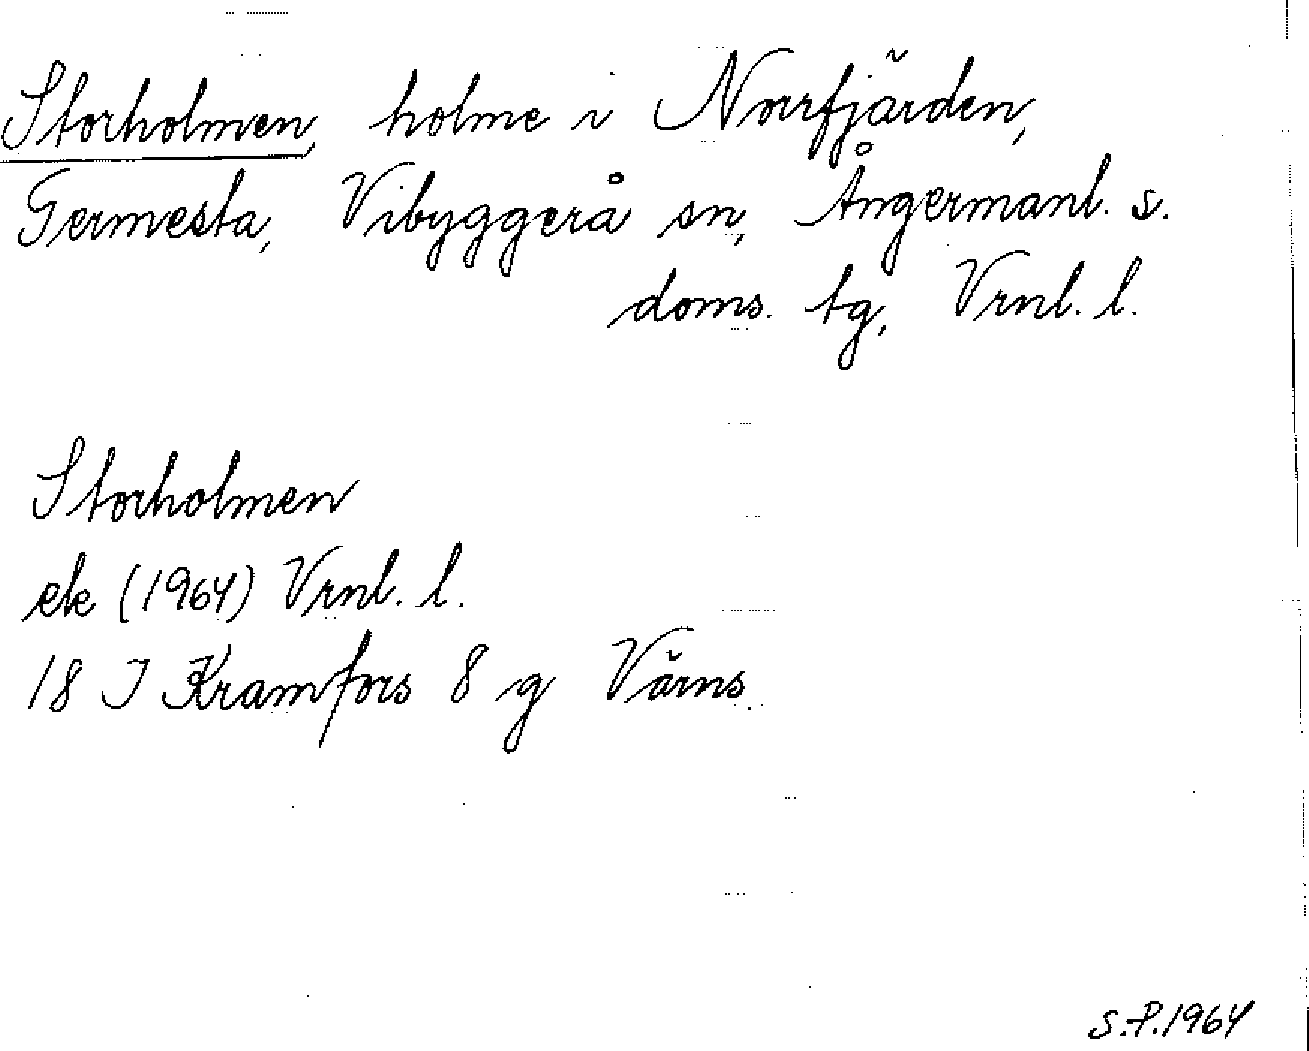 Storholmen, holme i Norrfjärden,
Germesta, Vibyggerå sn, Ångermanl. s.
doms. tg, Vrnl. l.
Storholmen
ek (1964) Vrnl. l.
18 I Kramfors 8 g Värns.
S.P. 1964